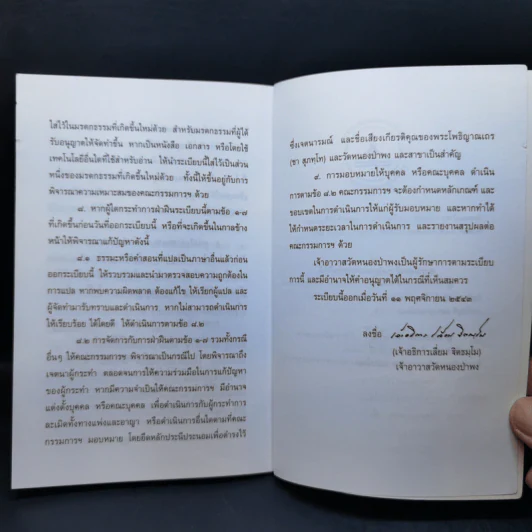 ใส่ไว้ในมรดกธรรมที่เกิดขึ้นใหม่ด้วย สำหรับมรดกธรรมที่ผู้ได้
รับอนุญาตให้จัดทำขึ้น หากเป็นหนังสือ เอกสาร หรือโดยใช้
เทคโนโลยีอื่นใดที่ใช้สำหรับอ่าน ให้นำระเบียบนี้ใส่ไว้เป็นส่วน
หนึ่งของมรดกธรรมที่เกิดขึ้นใหม่ด้วย ทั้งนี้ให้ขึ้นอยู่กับการ
พิจารณาความเหมาะสมของคณะกรรมการฯ ด้วย
๘. หากผู้ใดกระทำการฝ่าฝืนระเบียบนี้ตามข้อ ๑-๗
ที่เกิดขึ้นก่อนวันที่ออกระเบียบนี้ หรือที่จะเกิดขึ้นในกาลข้าง
หน้าให้พิจารณาแก้ปัญหาดังนี้
๘.๑ ธรรมะหรือคำสอนที่แปลเป็นภาษาอื่นแล้วก่อน
ออกระเบียบนี้ ให้รวบรวมและนำมาตรวจสอบความถูกต้องใน
การแปล หากพบความผิดพลาด ต้องแก้ไข ให้เรียกผู้แปล และ
ผู้จัดทำมารับทราบและดำเนินการ หากไม่สามารถดำเนินการ
ให้เรียบร้อย ได้โดยดี ให้ดำเนินการตามข้อ ๘.๒
๘.๒ การจัดการกับการฝ่าฝืนตามข้อ ๑-๗ รวมทั้งกรณี
อื่นๆ ให้คณะกรรมการฯ พิจารณาเป็นกรณีไป โดยพิจารณาถึง
เจตนาผู้กระทำ ตลอดจนการให้ความร่วมมือในการแก้ปัญหา
ของผู้กระทำ หากมีความจำเป็นให้คณะกรรมการฯ มีอำนาจ
แต่งตั้งบุคคล หรือคณะบุคคล เพื่อดำเนินการกับผู้กระทำการ
ละเมิดทั้งทางแพ่งและอาญา หรือดำเนินการอื่นใดตามที่คณะ
กรรมการฯ มอบหมาย โดยยึดหลักประนีประนอมเพื่อดำรงไว้
ซึ่งเจตนารมณ์ และชื่อเสียงเกียรติคุณของพระโพธิญาณเถร
(ชา สุภทฺโท) และวัดหนองป่าพง และสาขาเป็นสำคัญ
๙. การมอบหมายให้บุคคล หรือคณะบุคคล ดำเนิน
การตามข้อ ๘.๒ คณะกรรมการฯ จะต้องกำหนดหลักเกณฑ์ และ
ขอบเขตในการดำเนินการให้แก่ผู้รับมอบหมาย และหากทำได้
ให้กำหนดระยะเวลาในการดำเนินการ และรายงานสรุปผลต่อ
คณะกรรมการฯ ด้วย
เจ้าอาวาสวัดหนองป่าพงเป็นผู้รักษาการตามระเบียบ
การนี้ และมีอำนาจให้คำอนุญาตได้ในกรณีที่เห็นสมควร
ระเบียบนี้ออกเมื่อวันที่ ๑๑ พฤศจิกายน ๒๕๔๓
ลงชื่อ
(เจ้าอธิการเลี่ยม ฐิตธมฺโม)
เจ้าอาวาสวัดหนองป่าพง